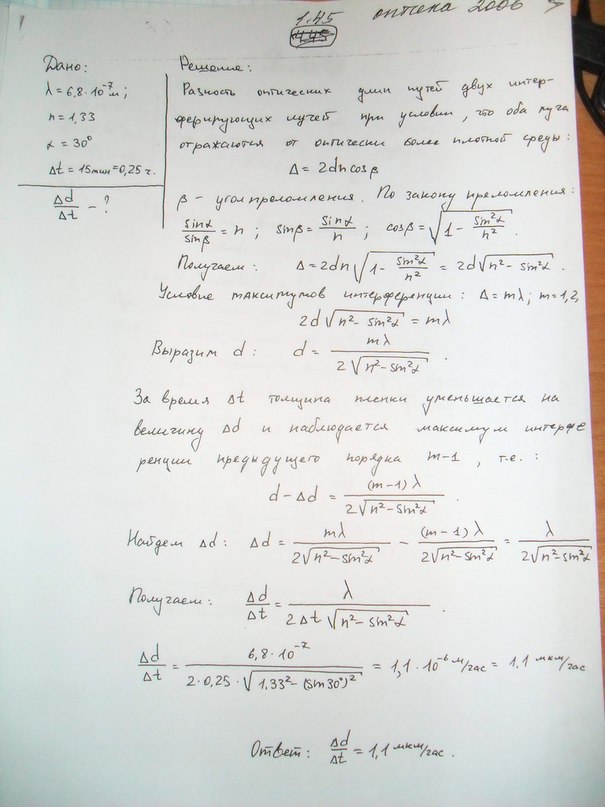 1.45 оптика 2006
445
Дано:
λ = 6,8·10⁻⁷ м;
n = 1,33
α = 30°
Δt = 15 мин = 0,25 ч.
Δd/Δt - ?
Решение:
Разность оптических длин путей двух интер-
ферирующих лучей при условии, что оба луча
отражаются от оптически более плотной среды:
Δ = 2dn cosβ
β - угол преломления. По закону преломления:
sinα/sinβ = n ; sinβ = sinα/n ; cosβ = √(1 - sin²α/n²) .
Получаем: Δ = 2dn√(1 - sin²α/n²) = 2d√(n² - sin²α) .
Условие максимумов интерференции: Δ = mλ; m = 1,2,
2d√(n² - sin²α) = mλ
Выразим d: d = mλ/(2√(n² - sin²α)) .
За время Δt толщина пленки уменьшается на
величину Δd и наблюдается максимум интерфе
ренции предыдущего порядка m-1 , т.е.:
d - Δd = (m-1)λ/(2√(n² - sin²α)) .
Найдем Δd: Δd = mλ/(2√(n² - sin²α)) - (m-1)λ/(2√(n² - sin²α)) = λ/(2√(n² - sin²α))
Получаем: Δd/Δt = λ/(2Δt√(n² - sin²α)) .
Δd/Δt = 6,8·10⁻⁷/(2·0,25·√(1.33² - (sin30°)²)) = 1,1·10⁻⁶ м/час = 1,1 мкм/час
Ответ: Δd/Δt = 1,1 мкм/час .